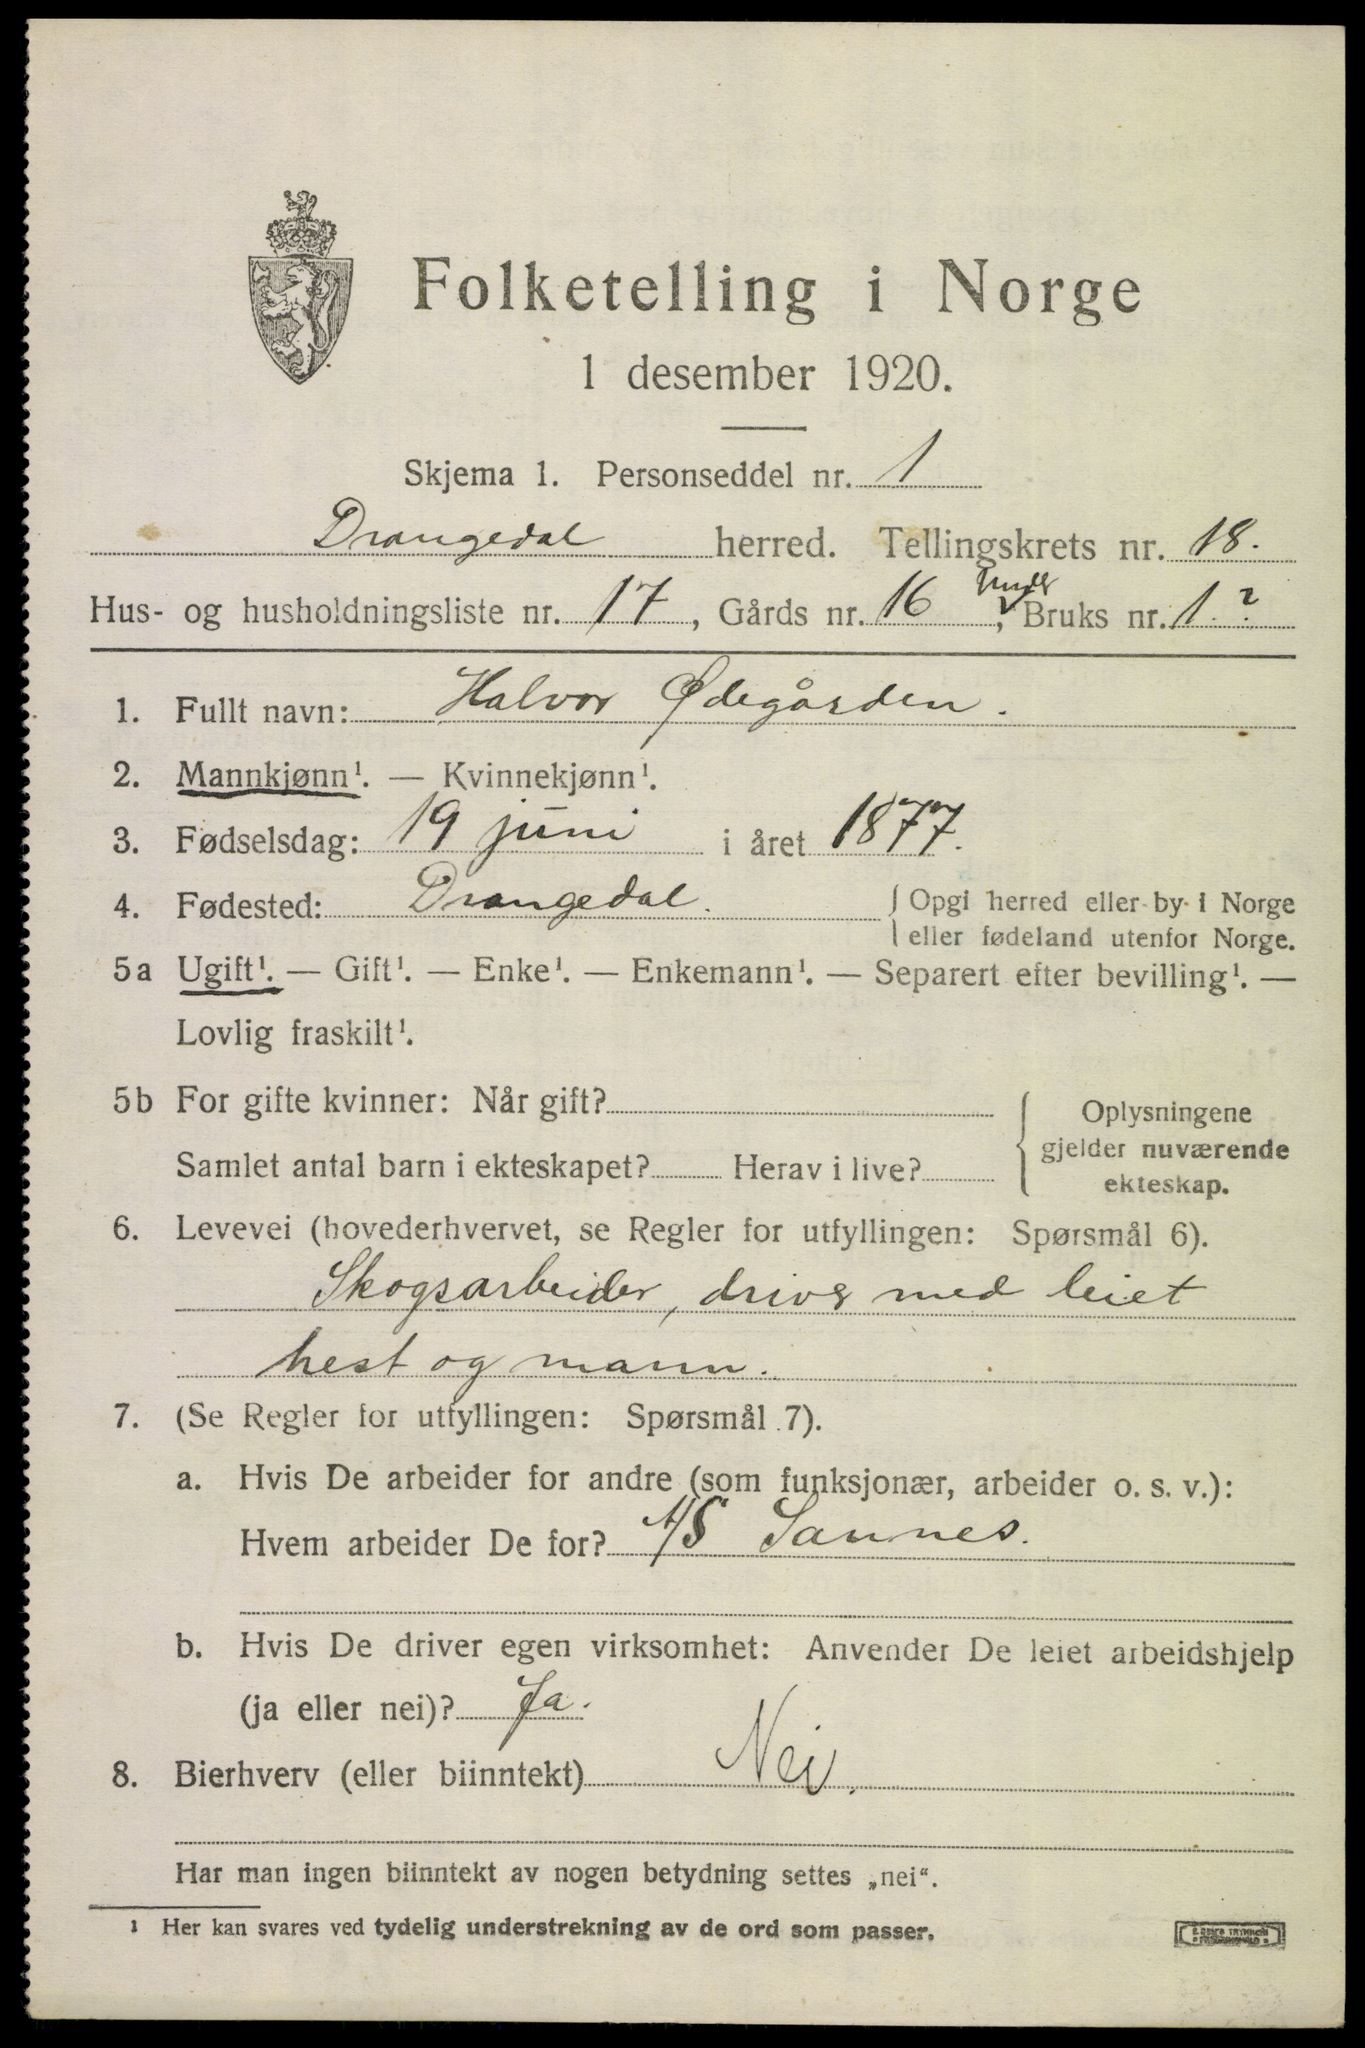 Folketelling i Norge
1 desember 1920.
Skjema 1. Personseddel nr. 1
Drangedal herred. Tellingskrets nr. 18.
Hus- og husholdningsliste nr. 17, Gårds nr. 16 under, Bruks nr. 1.?
1. Fullt navn: Halvor Ødegården.
2. Mannkjønn¹. — Kvinnekjønn¹.
3. Fødselsdag: 19 juni i året 1877.
4. Fødested: Drangedal. { Opgi herred eller by i Norge
eller fødeland utenfor Norge.
5a Ugift¹. — Gift¹. — Enke¹. — Enkemann¹. — Separert efter bevilling¹. —
Lovlig fraskilt¹.
5b For gifte kvinner: Når gift?
Samlet antal barn i ekteskapet? Herav i live?
{ Oplysningene
gjelder nuværende
ekteskap.
6. Levevei (hovederhvervet, se Regler for utfyllingen: Spørsmål 6).
Skogsarbeider, driver med leiet
hest og mann.
7. (Se Regler for utfyllingen: Spørsmål 7).
a. Hvis De arbeider for andre (som funksjonær, arbeider o. s. v.):
Hvem arbeider De for? A/S Sannes.
b. Hvis De driver egen virksomhet: Anvender De leiet arbeidshjelp
(ja eller nei)? Ja.
8. Bierhverv (eller biinntekt) Nei.
Har man ingen biinntekt av nogen betydning settes „nei“.
¹ Her kan svares ved tydelig understrekning av de ord som passer.